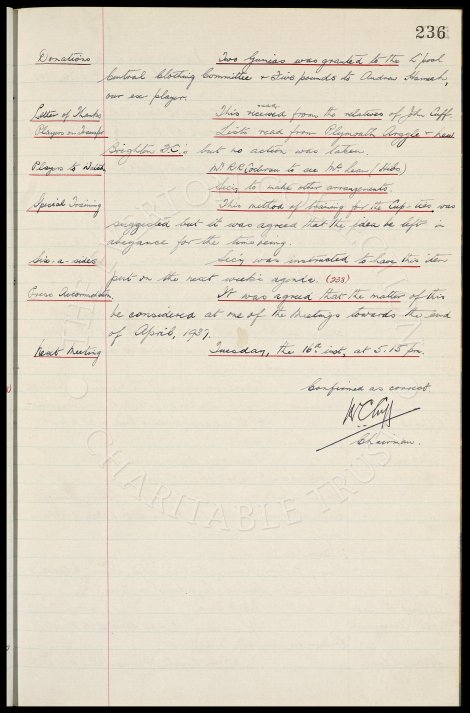 236
Donations Two Guineas was granted to the L'pool
Central Clothing Committee & Five pounds to Andrew Hannah,
our ex player.
Letter of Thanks This received from the relatives of John Cuff.
Players on Transfer Lists read from Plymouth Argyle & New
Brighton F.C.'s but no action was taken.
Players to Watch Mr R.R. Cochran to see McLean (Hibs)
Sec'y to make other arrangements.
Special Training This method of training for the Cup-ties was
suggested but it was agreed that the idea be left in
abeyance for the time being.
Six-a-sides Sec'y was instructed to have this item
put on the next week's agenda. (238)
Press Accommodation It was agreed that the matter of this
be considered at one of the Meetings towards the end
of April, 1937.
Next Meeting Tuesday, the 16th inst, at 5.15 pm.
Confirmed as correct.
W.C. Cuff
Chairman.
CHARITABLE TRUST